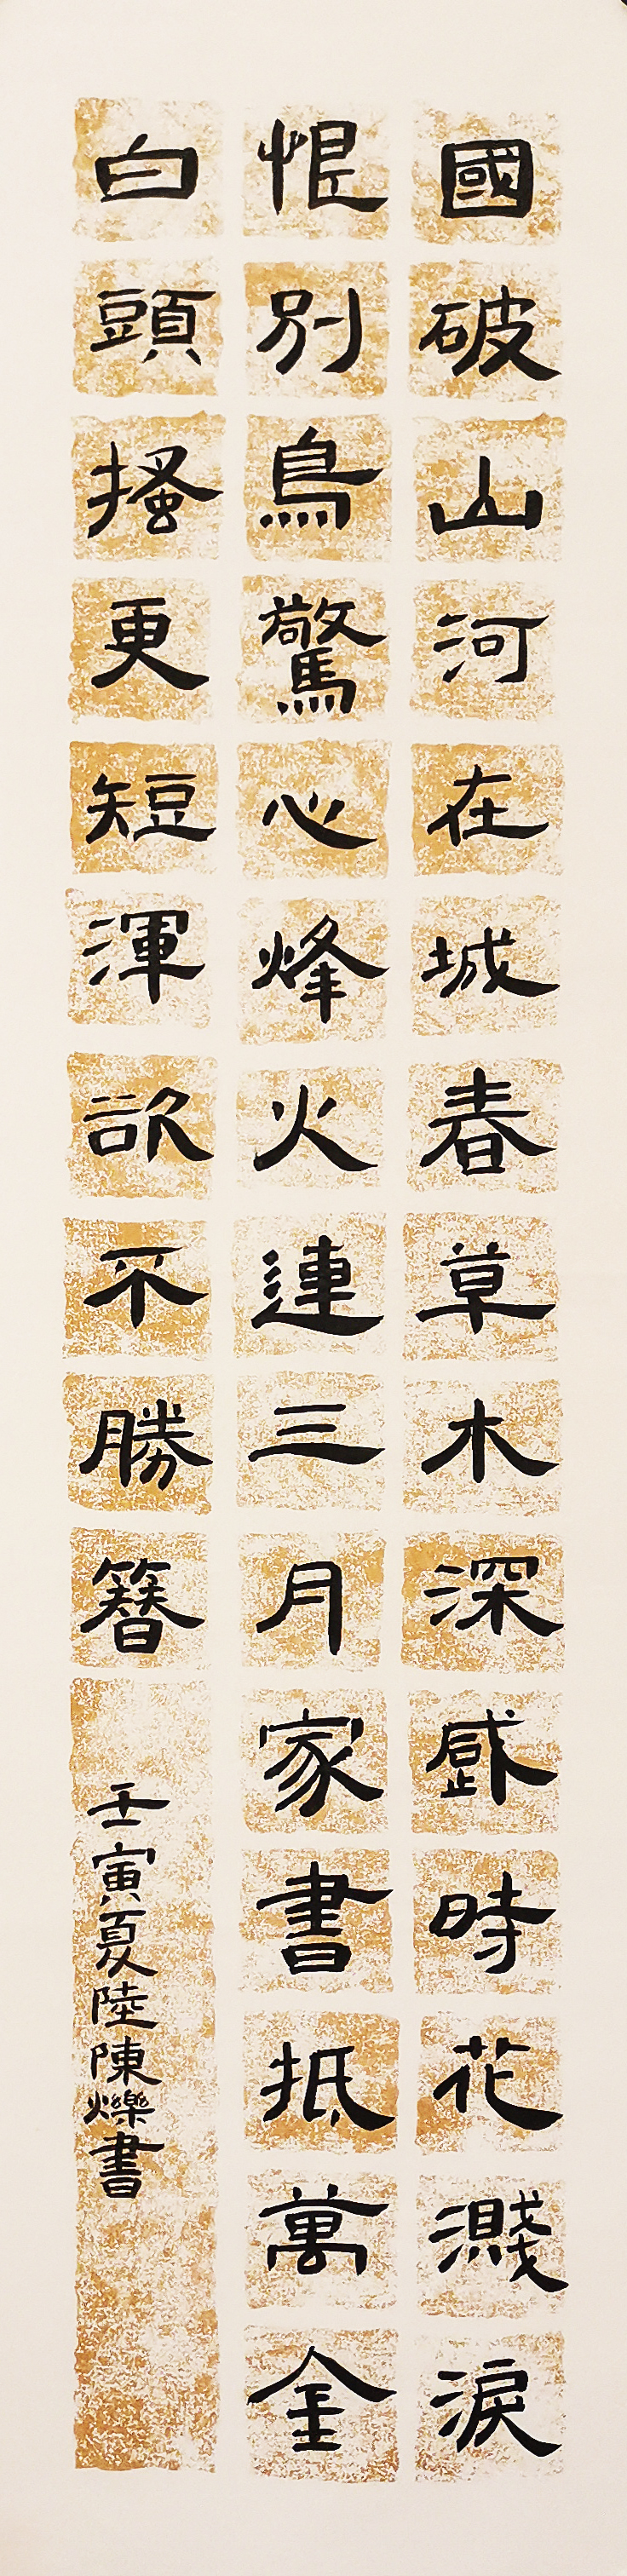 國破山河在城春草木深感時花濺淚
恨別鳥驚心烽火連三月家書抵萬金
白頭搔更短渾欲不勝簪
壬寅夏陸陳爍書